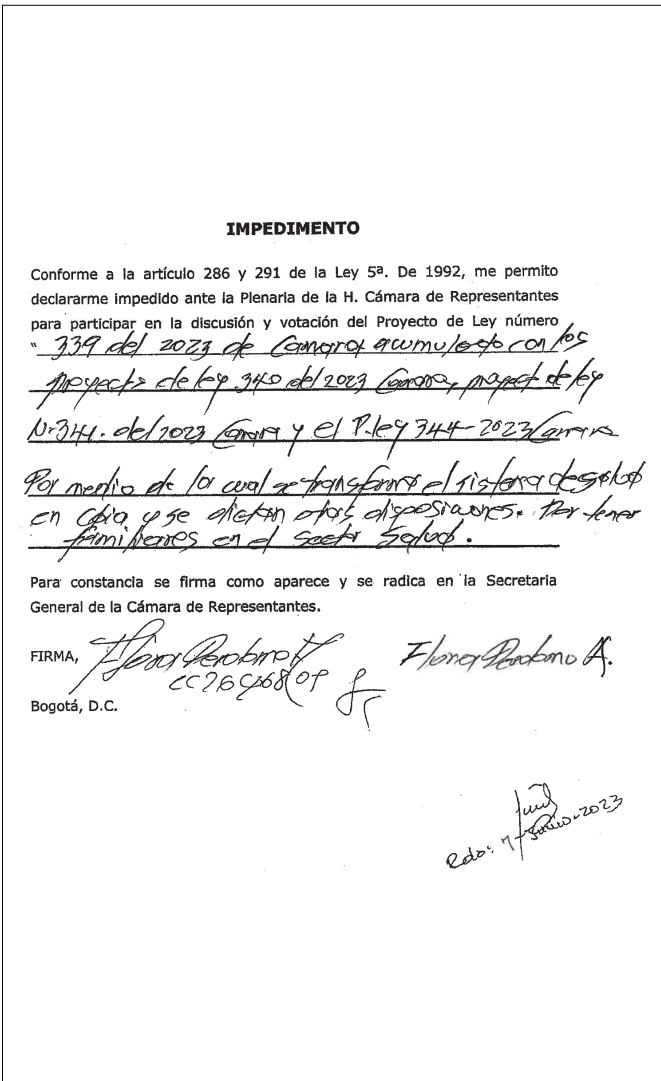 IMPEDIMENTO
Conforme a la artículo 286 y 291 de la Ley 5ª. De 1992, me permito
declararme impedido ante la Plenaria de la H. Cámara de Representantes
para participar en la discusión y votación del Proyecto de Ley número
" 339 del 2023 de Camara acumulado con los
proyectos de ley 340 del 2023 Camara, proyect de ley
Nº 341. del 2023 Camara y el P. ley 344-2023 Camara
Por medio de la cual se transforma el sistema de salud
en Cbia y se dictan otras disposiciones. Por tener
familiares en el sector Salud.
Para constancia se firma como aparece y se radica en la Secretaria
General de la Cámara de Representantes.
FIRMA, Flora Perdomo A Flora Perdomo A.
CC
Bogotá, D.C.
Rdo: 7-Junio-2023